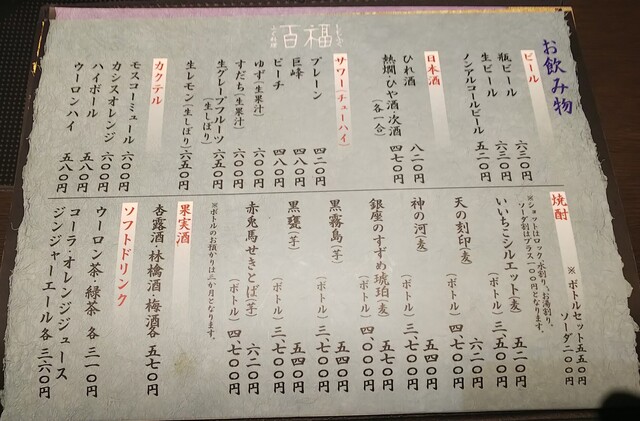 百福
お飲み物
ビール
瓶ビール 六三〇円
生ビール 六三〇円
ノンアルコールビール 五二〇円
日本酒
ひれ酒 八二〇円
熱燗・ひや酒・次酒
(各一合) 四七〇円
サワー(チューハイ)
プレーン 四二〇円
巨峰 四八〇円
ピーチ 四八〇円
ゆず(生果汁) 六〇〇円
すだち(生果汁) 六〇〇円
生グレープフルーツ
(生しぼり) 六五〇円
生レモン(生しぼり) 六五〇円
カクテル
モスコーミュール 六〇〇円
カシスオレンジ 六〇〇円
ハイボール 五八〇円
ウーロンハイ 五八〇円
焼酎
※ボトルセット五五〇円
ソーダ二〇〇円
※ショットはロック、水割り、お湯割り。
ソーダ割はプラス一〇〇円となります。
いいちこシルエット(麦) 五二〇円
(ボトル)三、五〇〇円
天の刻印(麦) 六二〇円
(ボトル)四、七〇〇円
神の河(麦) 五四〇円
(ボトル)三、七〇〇円
銀座のすずめ琥珀(麦) 五七〇円
(ボトル)四、〇〇〇円
黒霧島(芋) 五四〇円
(ボトル)三、七〇〇円
黒甕(芋) 五四〇円
(ボトル)三、七〇〇円
赤兎馬せきとば(芋) 六二〇円
(ボトル)四、七〇〇円
※ボトルのお預かりは三か月となります。
果実酒
杏露酒・林檎酒・梅酒各 五七〇円
ソフトドリンク
ウーロン茶・緑茶 各 三一〇円
コーラ・オレンジジュース
ジンジャーエール各 三六〇円